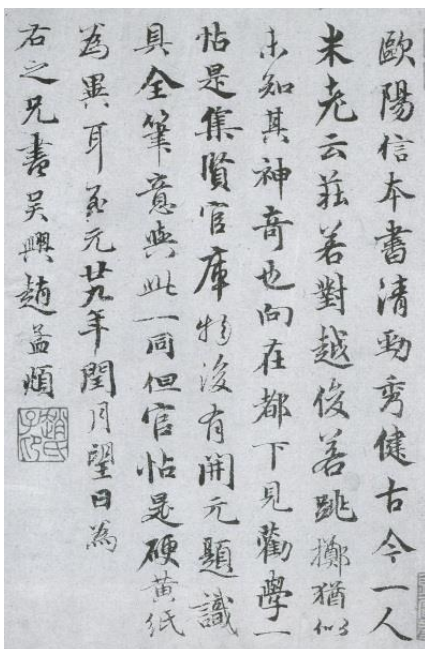 歐陽信本書清勁秀健古今一人
米老云莊若對越俊若跳擲猶似
未知其神奇也向在都下見勸學一
帖是集賢官庫物後有開元題識
具全筆意與此一同但官帖是硬黃紙
為異耳至元廿九年閏月望日為
右之兄書吳興趙孟頫
趙氏子印